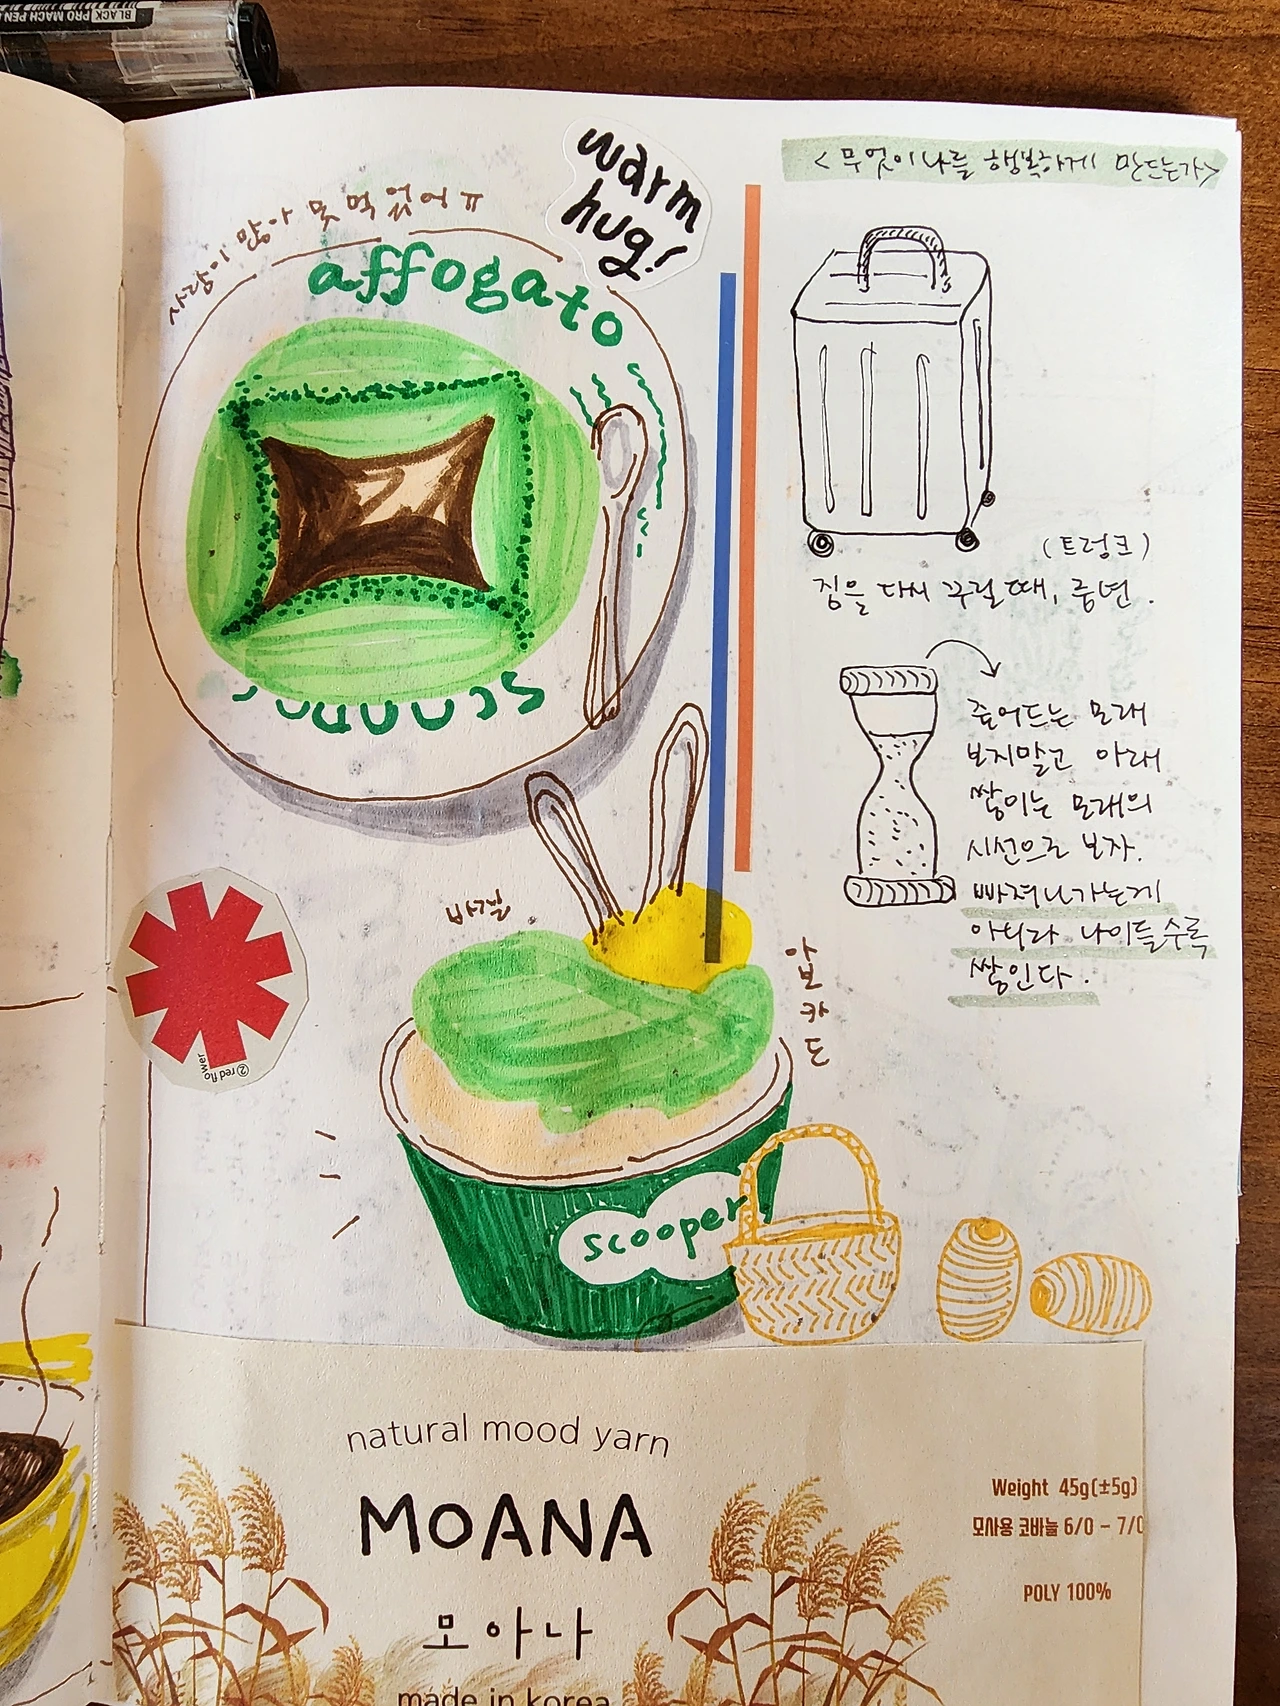 BLACK PRO MACH PEN
warm
hug!
사람이 많아 못 먹었어ㅠ
affogato
<무엇이 나를 행복하게 만드는가>
(트렁크)
짐을 다시 꾸릴 때, 중년.
줄어드는 모래
보지말고 아래
쌓이는 모래의
시선으로 보자.
빠져나가는게
아니라 나이들수록
쌓인다.
바질
아보카도
② red flower
scooper
natural mood yarn
MOANA
모아나
made in korea
Weight 45g(±5g)
모사용 코바늘 6/0 - 7/0
POLY 100%